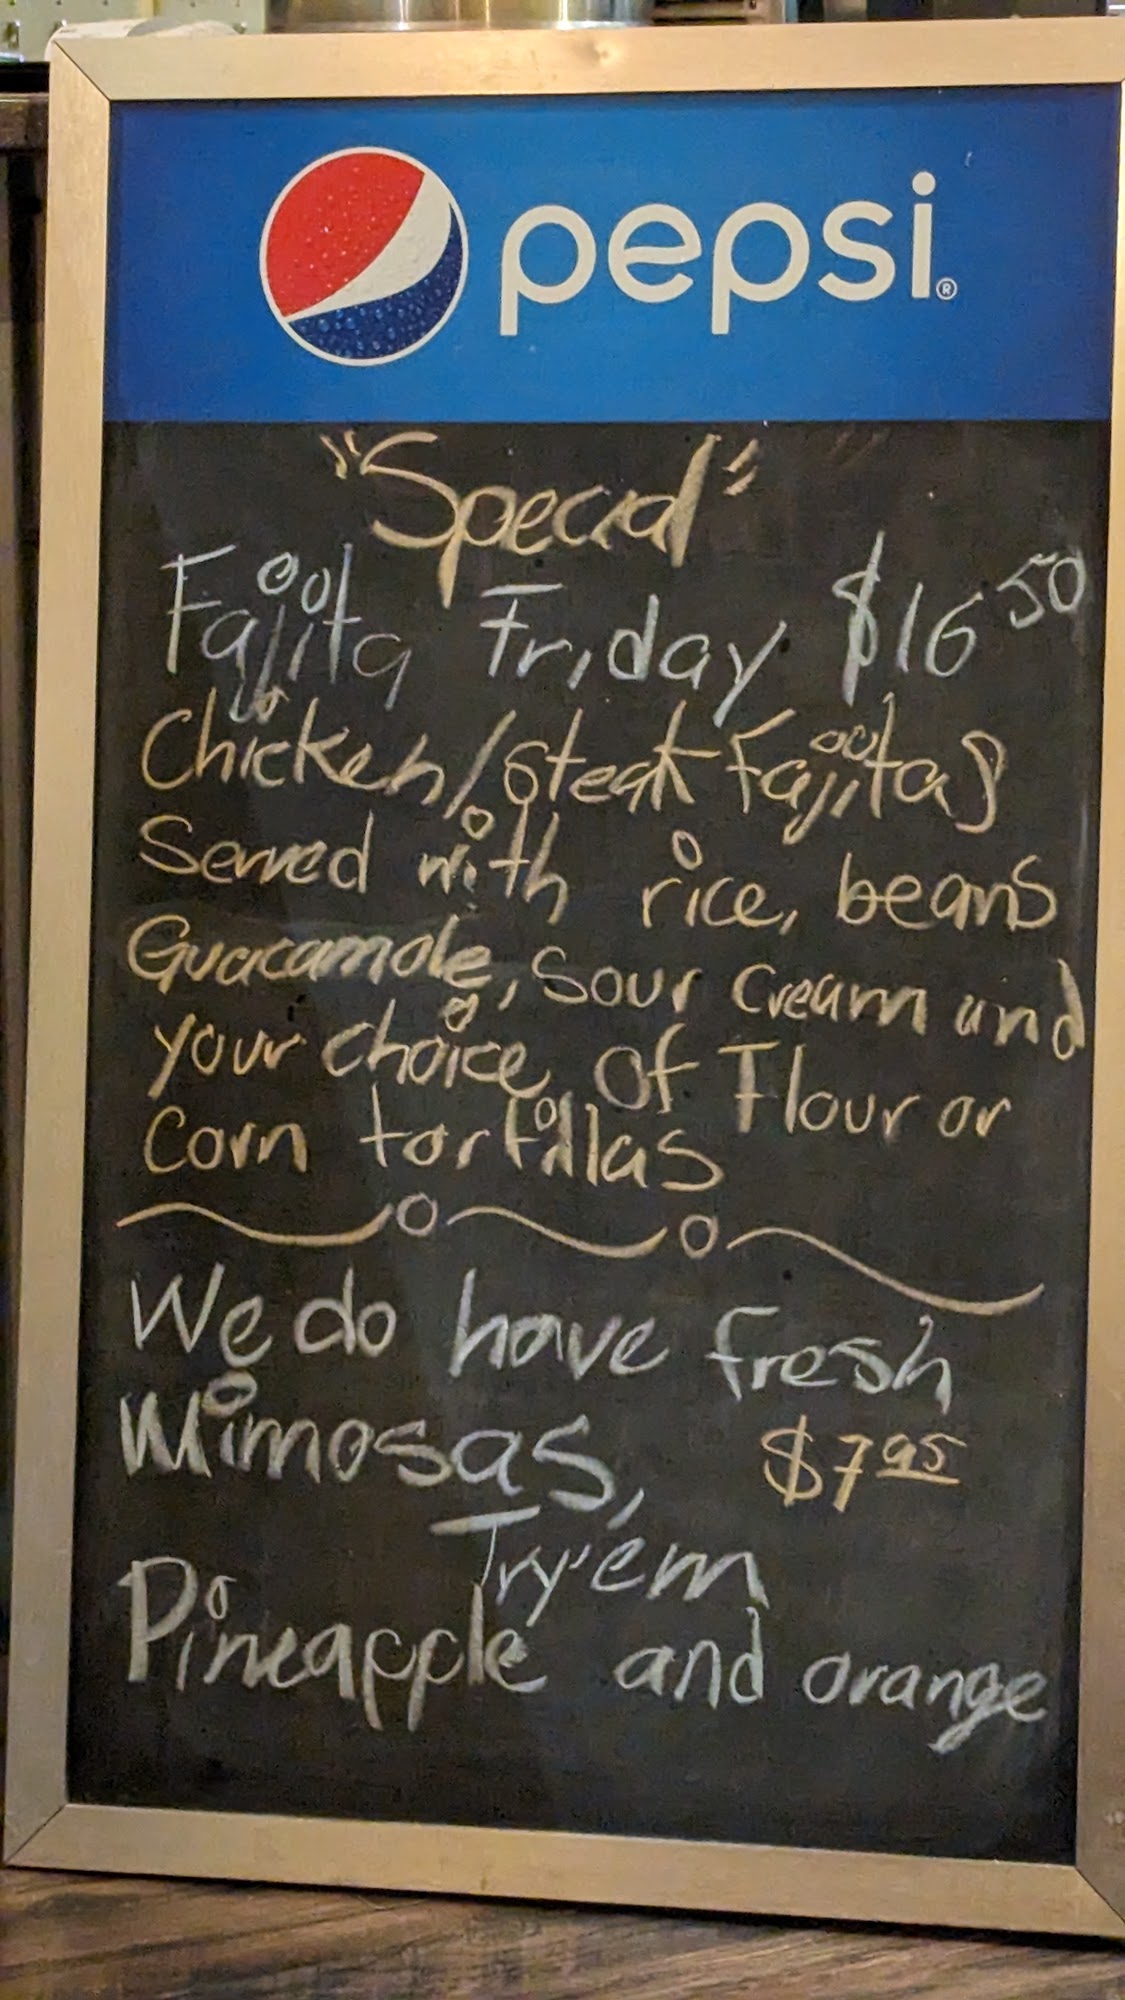 pepsi®
"Special"
Fajita Friday $16 50
Chicken/Steak Fajitas
Served with rice, beans
Guacamole, Sour Cream and
your choice of Flour or
Corn tortillas
We do have fresh
Mimosas, $7 95
Try'em
Pineapple and orange